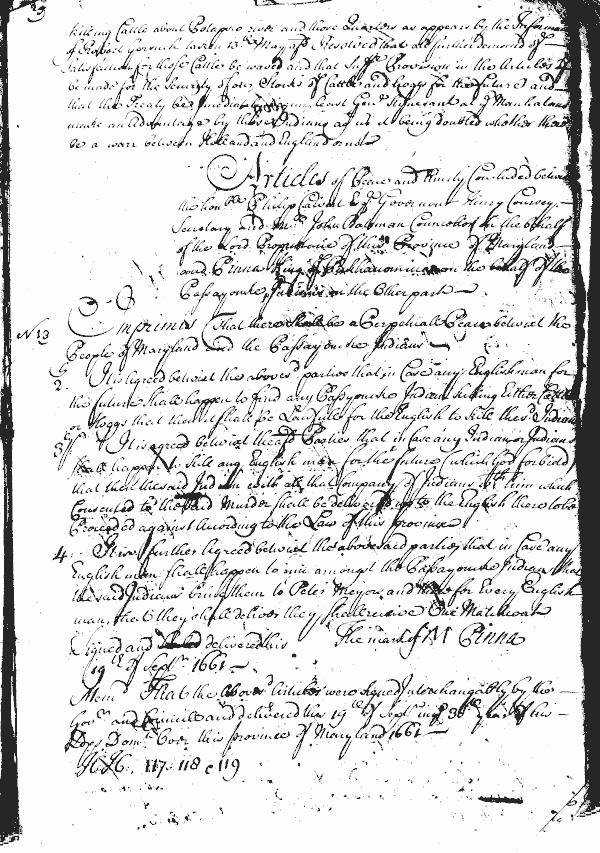 killing Cattle about Patapsco river and those Quarters as appears by the Informa
of Robert Gorsuch taken 13th May ps Resolved that all further demand of
Satisfaction for those Cattle be waved and that Provision in the Articles
be made for the Security of our Stocks of Cattle and hoggs for the future and
that the Treaty be least Genl at Manhatans
make an Advantage by these Indians as it being doubted whether there
be a warr between Holland and England or not
Articles of Peace and Amity Concluded betwixt
the honble Philip Calvert Esq Governour Henry Coursey
Secretary and Mr John Bateman Councellor on the behalf
of the Lord Proprietarie of this Province of Maryland
and Pinna King of on the behalf of the
Passayonke Indians on the Other part
N 13
Imprimis That there shall be a Perpetuall Peace betwixt the
People of Maryland and the Passayonke Indians
2. It is Agreed betwixt the abovesd parties that in Case any Englishman for
the future shall happen to find any Passyonke Indian killing Either Cattle
or Hoggs that then it shall be Lawfull for the English to kill the sd Indian
3 It is agreed betwixt the afd Parties that in case any Indian or Indians
shall happen to kill any English man for the future (which God forbid)
that then the said Indian with all that Company of Indians with him which
Consented to the said Murder shall be delivered up to the English there to be
Proceeded against According to the Law of this province
4. It is further Agreed betwixt the abovesaid parties that in Case any
English man shall happen to runn amongst the Passayonke Indians that
the said Indians bring them to Peter Meyor and for Every English
man, that they shall deliver they shall receive One Matchcoat
Signed and delivered this The mark of M Pinna
19th of Septr 1661
Memd That the aboves Articles were signed Interchangeably by the
Govr and Councill and delivered the 19th of Septr in 30th year of his
Lops Domn Over this province of Maryland 1661
HH. 117: 118 & 119